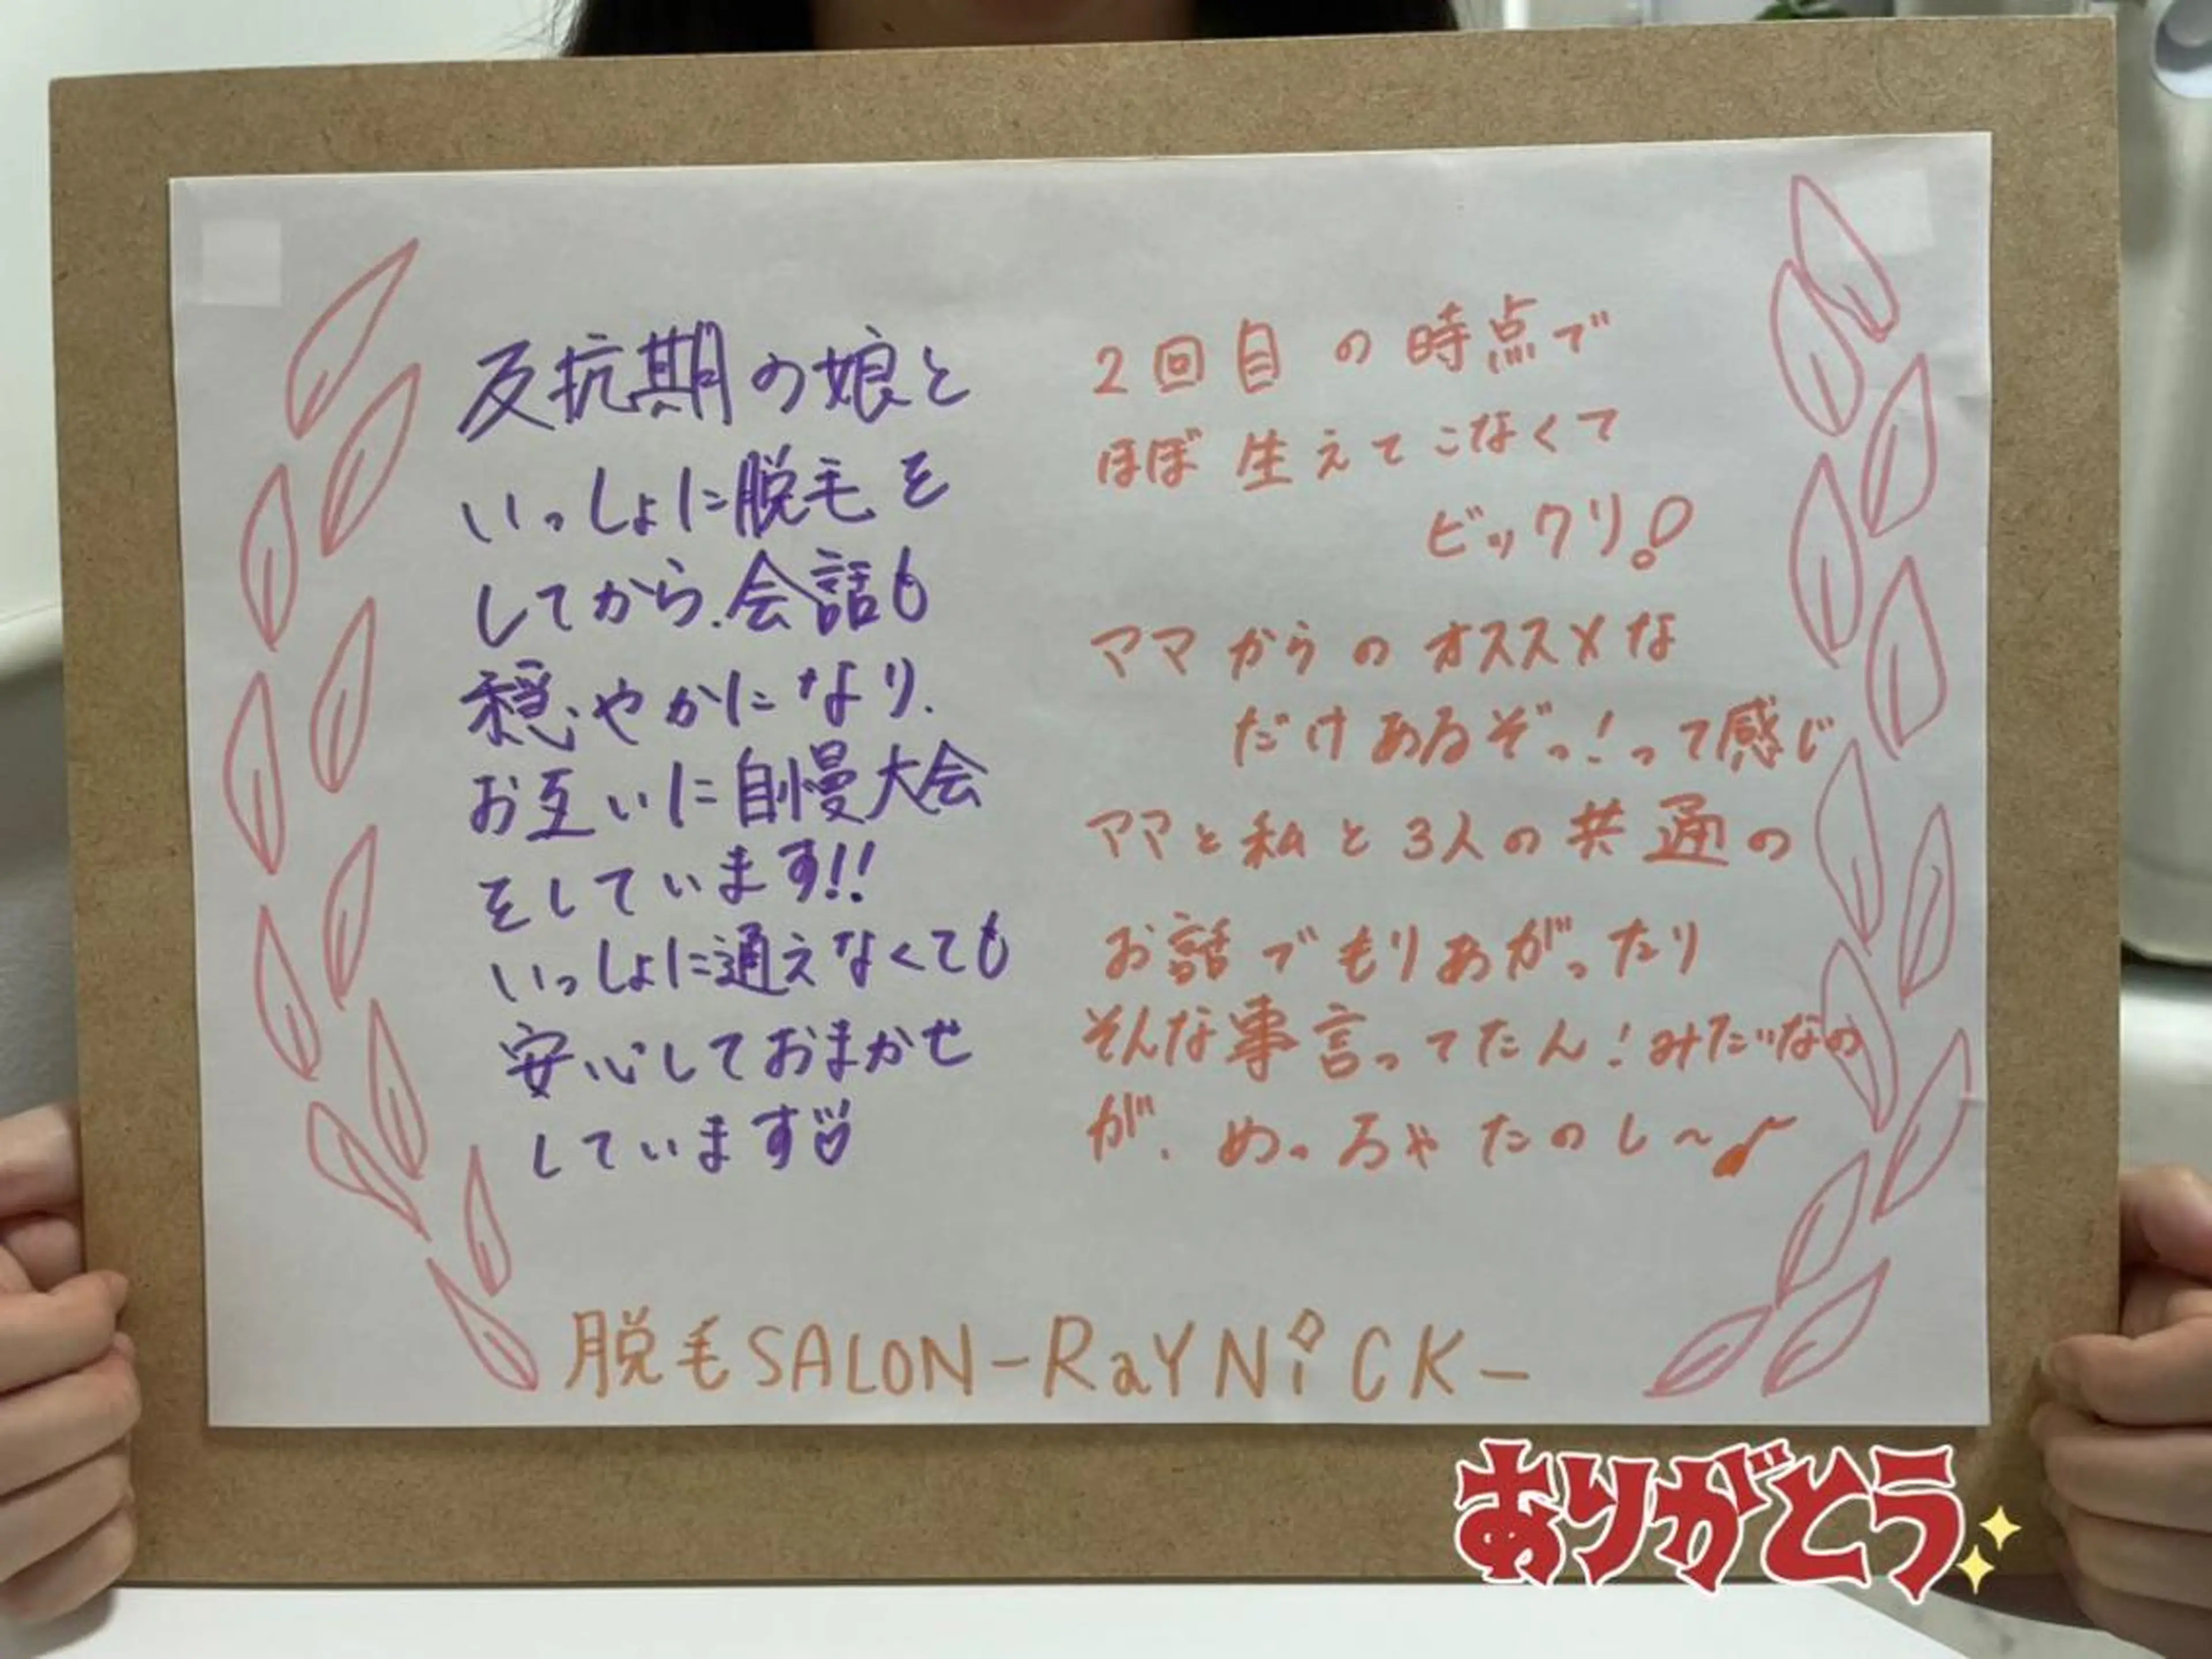 反抗期の娘と
いっしょに脱毛を
してから.会話も
穏やかになり.
お互いに自慢大会
をしています!!
いっしょに通えなくても
安心しておまかせ
しています♡
2回目の時点で
ほぼ生えてこなくて
ビックリ!
ママからのオススメな
だけあるぞっ!って感じ
ママと私と3人の共通の
お話でもりあがったり
そんな事言ってたん!みたいなの
が、めっちゃたのし~♪
脱毛SALON-RaYNiCK-
ありがとう